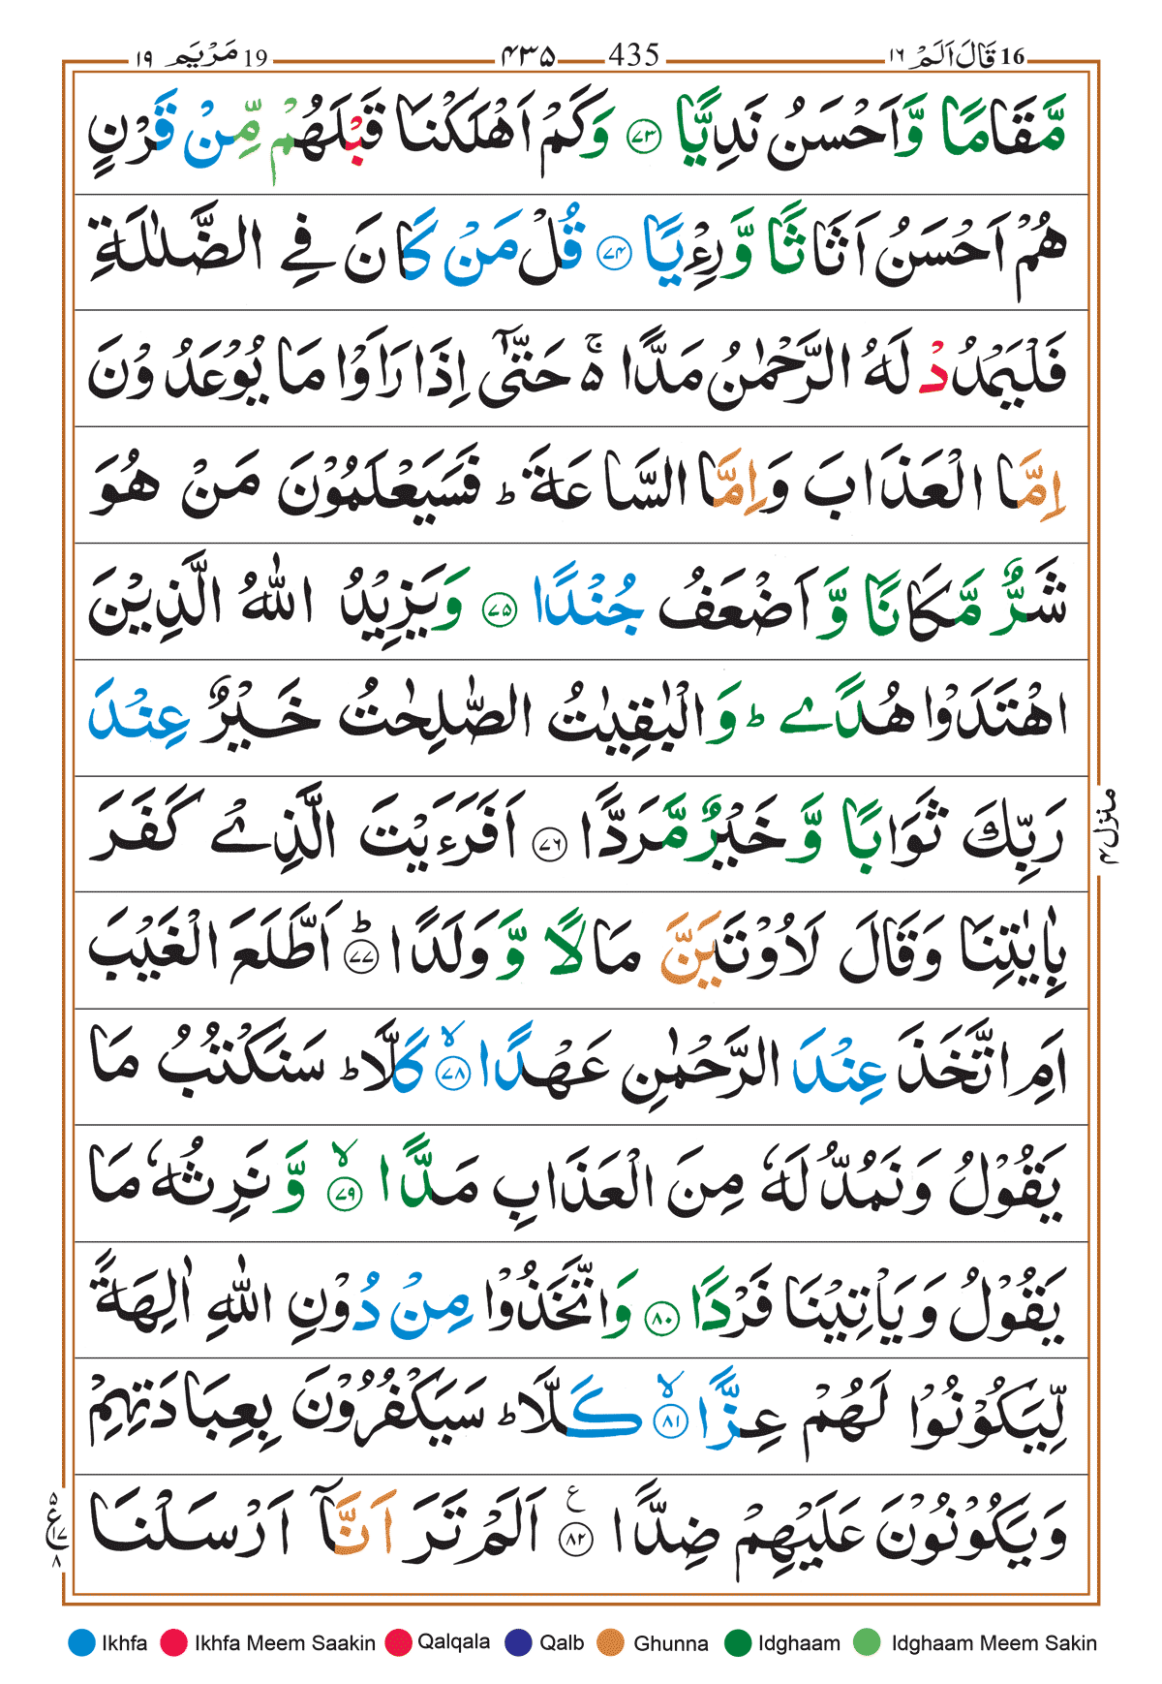 19 مَرْيَم ١٩ ۴۳۵ 435 16 قَالَ اَلَمْ ١٦
مَّقَامًا وَّاَحْسَنُ نَدِيًّا ﴿۷۳﴾ وَكَمْ اَهْلَكْنَا قَبْلَهُمْ مِّنْ قَرْنٍ
هُمْ اَحْسَنُ اَثَاثًا وَّرِءْيًا ﴿۷۴﴾ قُلْ مَنْ كَانَ فِي الضَّلٰلَةِ
فَلْيَمْدُدْ لَهُ الرَّحْمٰنُ مَدًّا ۚ۬ حَتّٰٓى اِذَا رَاَوْا مَا يُوْعَدُوْنَ
اِمَّا الْعَذَابَ وَاِمَّا السَّاعَةَ ؕ فَسَيَعْلَمُوْنَ مَنْ هُوَ
شَرٌّ مَّكَانًا وَّاَضْعَفُ جُنْدًا ﴿۷۵﴾ وَيَزِيْدُ اللّٰهُ الَّذِيْنَ
اهْتَدَوْا هُدًے ؕ وَالْبٰقِيٰتُ الصّٰلِحٰتُ خَيْرٌ عِنْدَ
رَبِّكَ ثَوَابًا وَّخَيْرٌ مَّرَدًّا ﴿۷۶﴾ اَفَرَءَيْتَ الَّذِےْ كَفَرَ
بِاٰيٰتِنَا وَقَالَ لَاُوْتَيَنَّ مَالًا وَّوَلَدًا ؕ ﴿۷۷﴾ اَطَّلَعَ الْغَيْبَ
اَمِ اتَّخَذَ عِنْدَ الرَّحْمٰنِ عَهْدًا ۙ ﴿۷۸﴾ كَلَّا ؕ سَنَكْتُبُ مَا
يَقُوْلُ وَنَمُدُّ لَهٗ مِنَ الْعَذَابِ مَدًّا ۙ ﴿۷۹﴾ وَّنَرِثُهٗ مَا
يَقُوْلُ وَيَاْتِيْنَا فَرْدًا ﴿۸۰﴾ وَاتَّخَذُوْا مِنْ دُوْنِ اللّٰهِ اٰلِهَةً
لِّيَكُوْنُوْا لَهُمْ عِزًّا ۙ ﴿۸۱﴾ كَلَّا ؕ سَيَكْفُرُوْنَ بِعِبَادَتِهِمْ
وَيَكُوْنُوْنَ عَلَيْهِمْ ضِدًّا ﴿۸۲﴾ ع اَلَمْ تَرَ اَنَّآ اَرْسَلْنَا
منزل ۴
۵ ع ١٧ ٨
Ikhfa Ikhfa Meem Saakin Qalqala Qalb Ghunna Idghaam Idghaam Meem Sakin